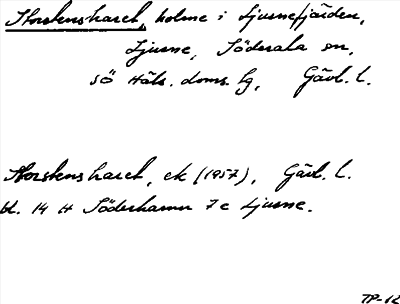 Storstensharet, holme i Ljusnefjärden,
Ljusne, Söderala sn,
SÖ Häls. doms. lg, Gävl. l.
Storstensharet, ek (1957), Gävl. l.
bl. 14 H Söderhamn 7 c Ljusne.
TP-62